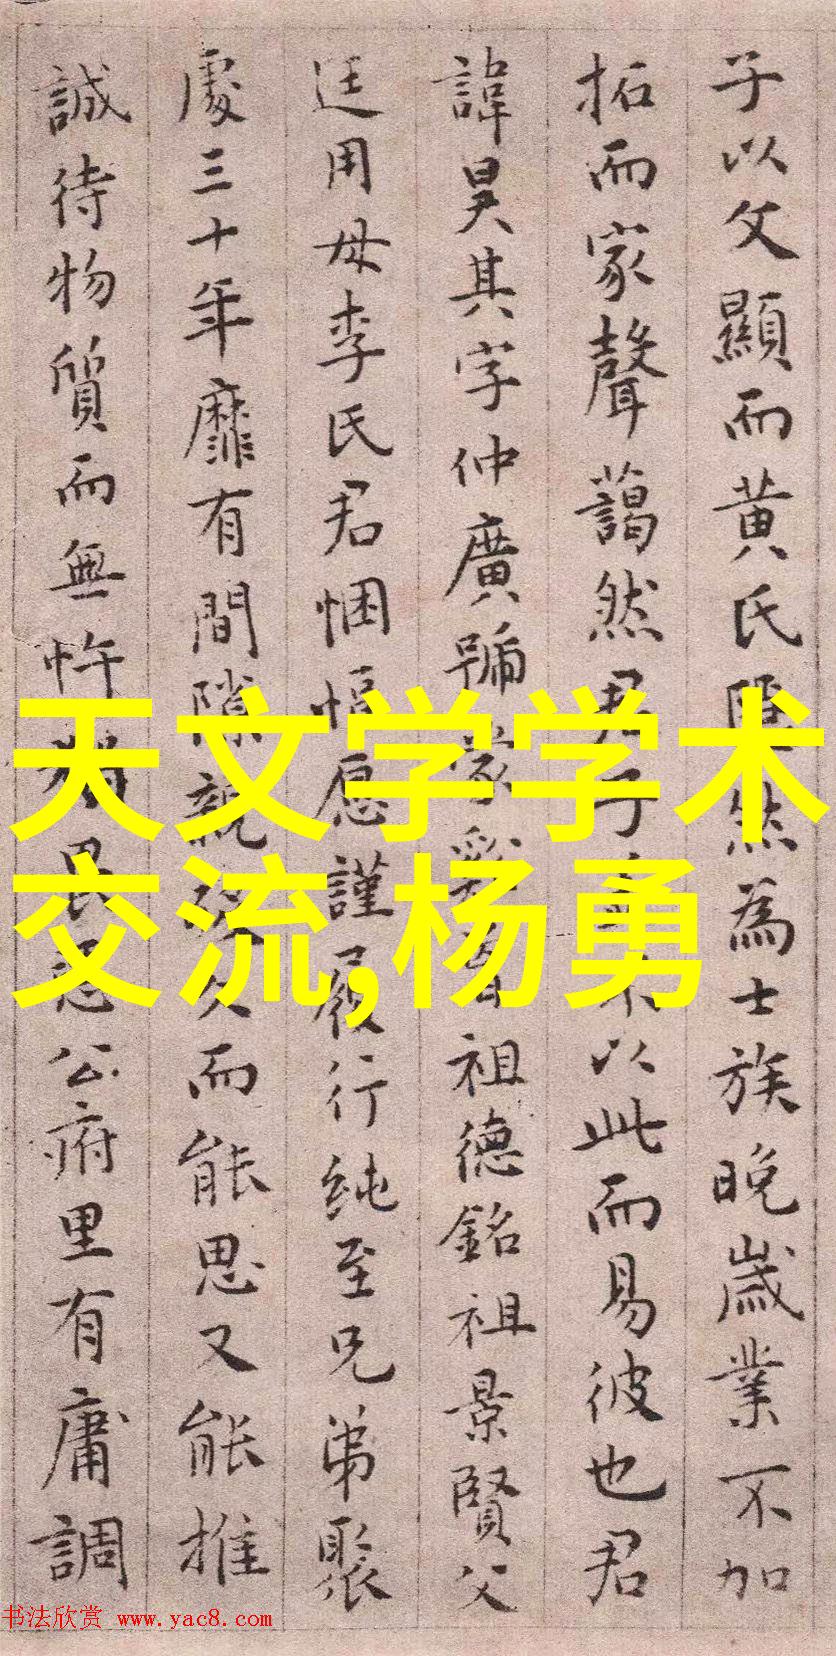 子以父顯而黄氏然為士族晚嵗業不加
拓而家聲藹然君子不以此而易彼也君
諱昊其字仲廣號祖德銘祖景賢父
廷用母李氏君悃愊愿謹履行純至兄弟聚
處三十年靡有間隙親而能思又能推
誠待物質而無忤畏公府里有庸調
天文学学术
交流,杨勇
书法欣赏 www.yac8.com